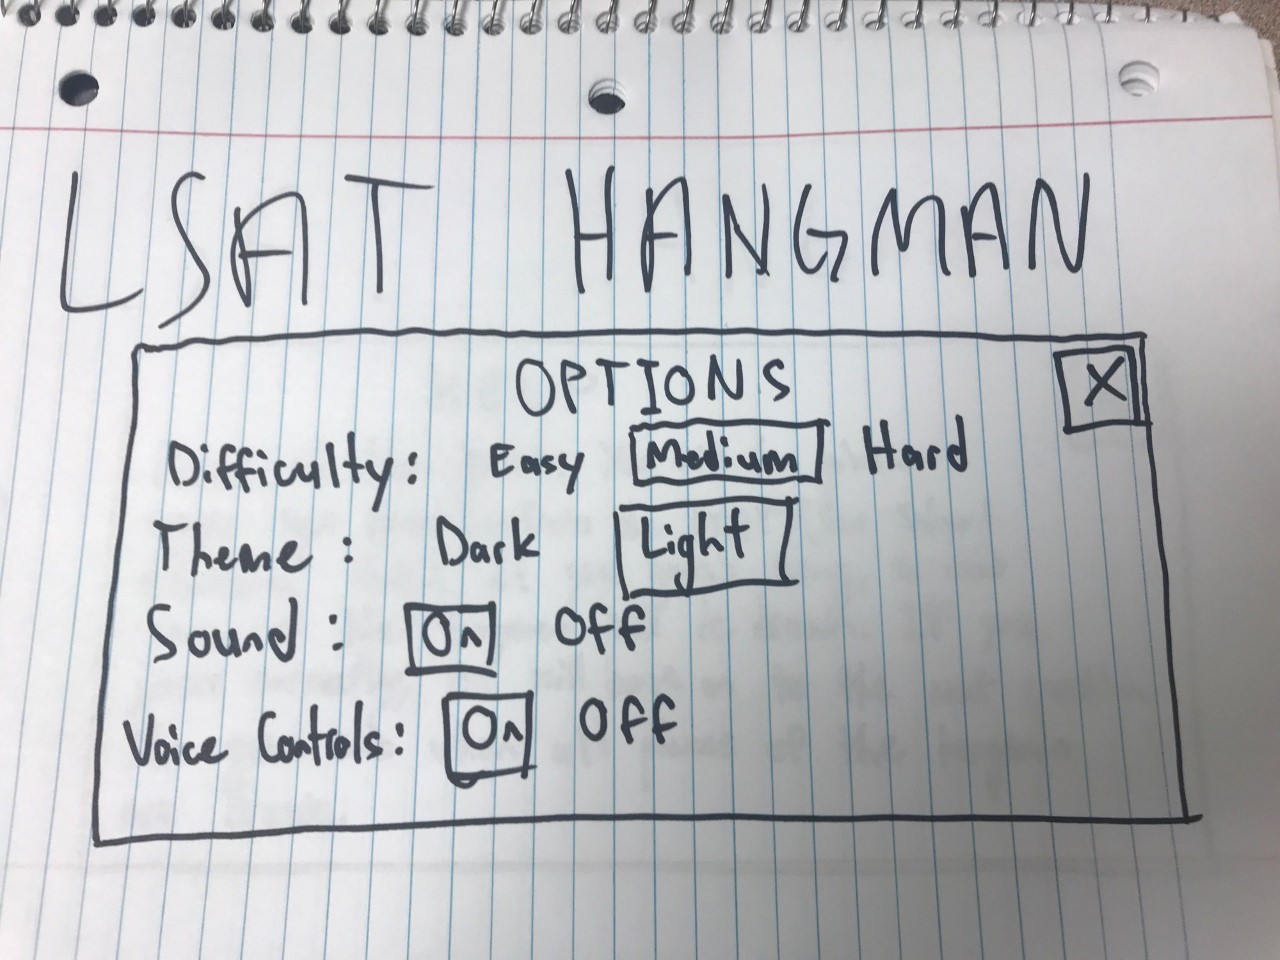 LSAT HANGMAN
OPTIONS X
Difficulty: Easy Medium Hard
Theme: Dark Light
Sound: On Off
Voice Controls: On Off